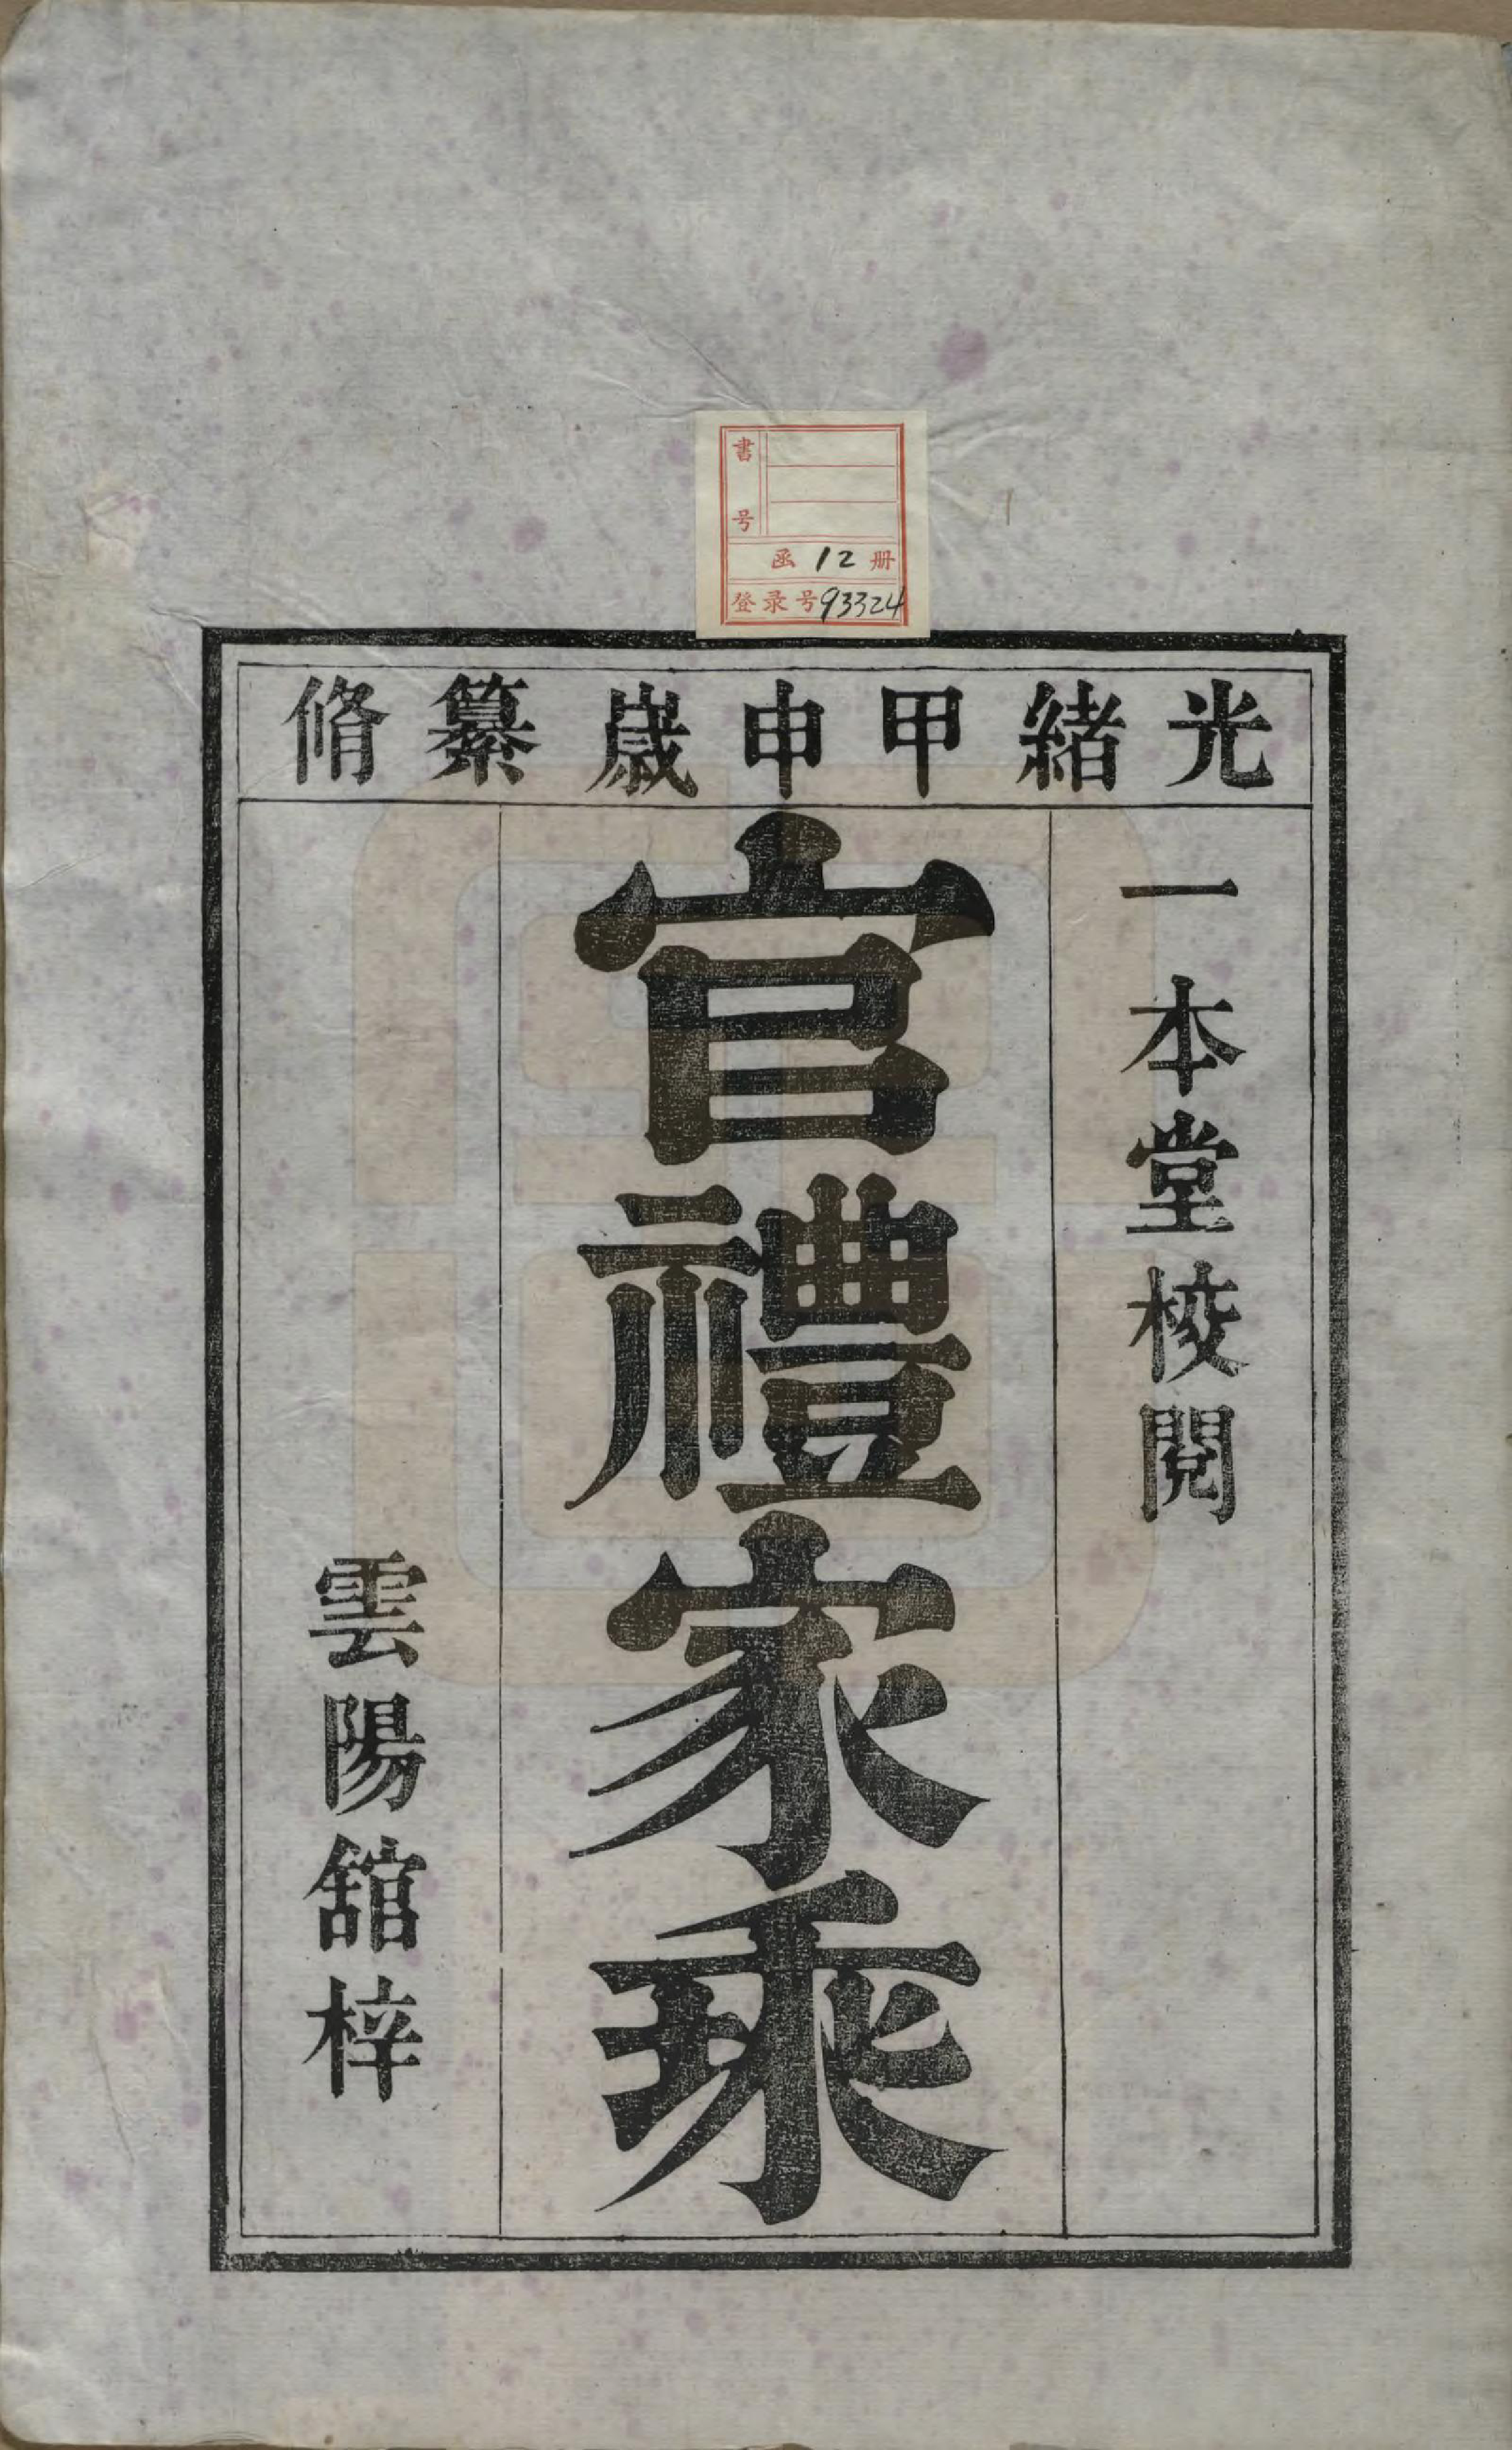 書号
函 12 册
登录号 93324
光緒甲申歲纂脩
一本堂校閱
官禮家乘
雲陽舘梓